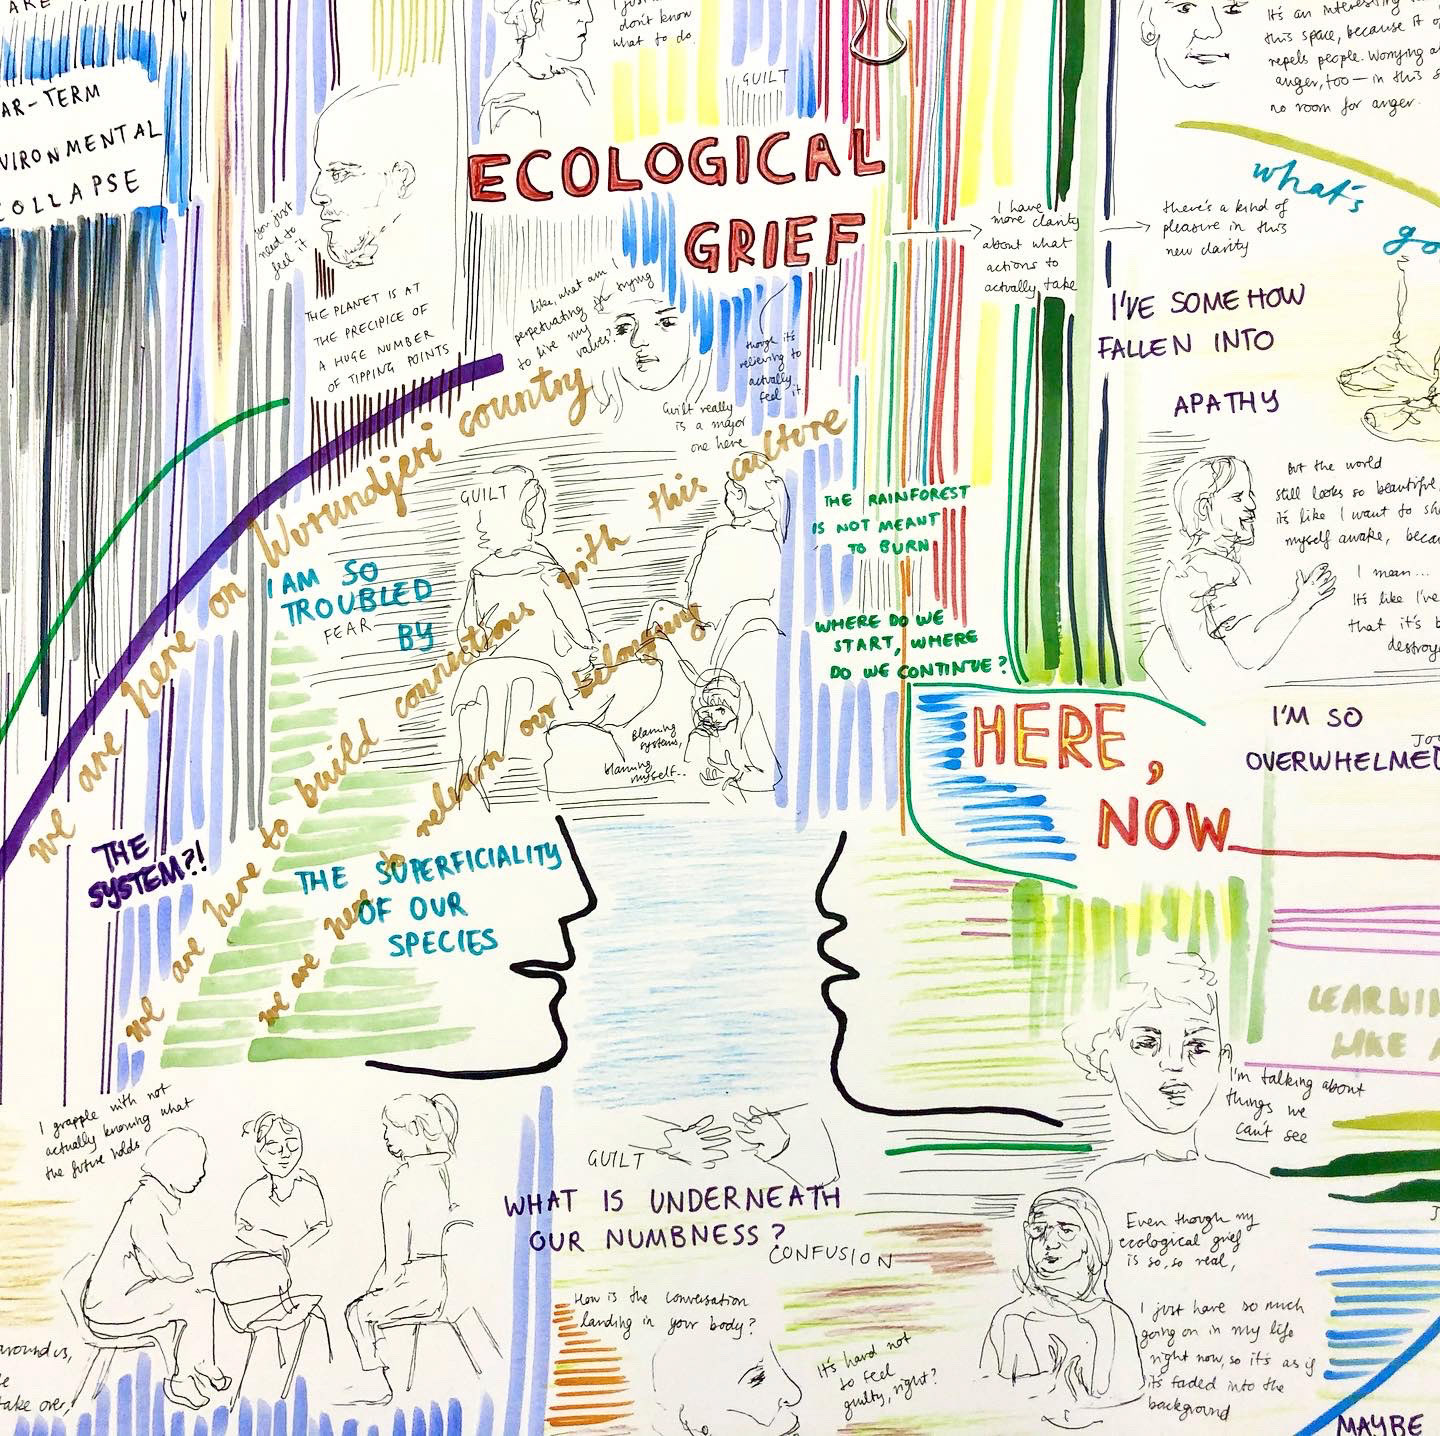 AR-TERM
VIRONMENTAL
COLLAPSE
you just
need to
feel it
THE PLANET IS AT
THE PRECIPICE OF
A HUGE NUMBER
OF TIPPING POINTS
don't know
what to do.
GUILT
ECOLOGICAL
GRIEF
like, what am I
perpetuating in trying
to live my
values?
though it's
relieving to
actually
feel it.
Guilt really
is a major
one here
I have
more clarity
about what
actions to
actually take
there's a kind of
pleasure in this
new clarity
It's an interesting
this space, because it
repels people. Worrying
anger, too — in this
no room for anger.
what's
go
I'VE SOMEHOW
FALLEN INTO
APATHY
But the world
still looks so beautiful,
it's like I want to
myself awake,
I mean...
It's like I've
that it's
destroy
we are here on Wurundjeri country
we are here to build connections with this culture
we are here to relearn our belonging
GUILT
I AM SO
TROUBLED
FEAR
BY
THE SUPERFICIALITY
OF OUR
SPECIES
THE
SYSTEM?!
Blaming
systems,
blaming
myself..
THE RAINFOREST
IS NOT MEANT
TO BURN
WHERE DO WE
START, WHERE
DO WE CONTINUE?
HERE,
NOW
I'M SO
OVERWHELMED
LEARNIN
LIKE A
I'm talking about
things we
can't see
I grapple with not
actually knowing what
the future holds
GUILT
WHAT IS UNDERNEATH
OUR NUMBNESS?
CONFUSION
How is the conversation
landing in your body?
It's hard not
to feel
guilty, right?
Even though my
ecological grief
is so, so real,
I just have so much
going on in my life
right now, so it's as if
it's faded into the
background
around us,
take over,
MAYBE